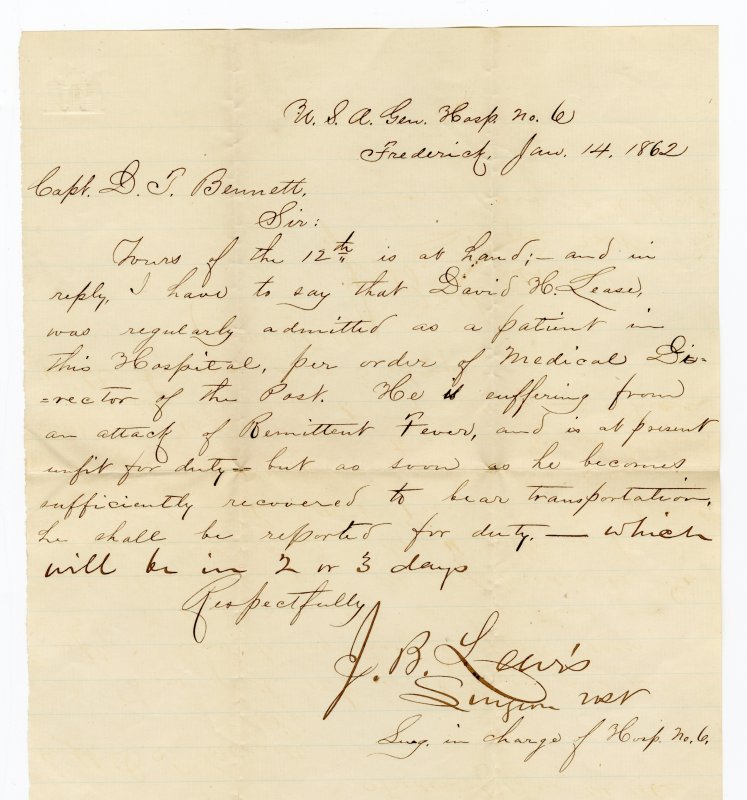 U. S. A. Gen. Hosp. No. 6
Frederick, Jan. 14, 1862
Capt. D. T. Bennett.
Sir:
Yours of the 12th is at hand;– and in
reply, I have to say that David H. Lease,
was regularly admitted as a patient in
this Hospital, per order of Medical Di=
=rector of the Post. He is suffering from
an attack of Remittent Fever, and is at present
unfit for duty – but as soon as he becomes
sufficiently recovered to bear transportation,
he shall be reported for duty. – which
will be in 2 or 3 days
Respectfully
J. B. Lewis
Surgeon
Surg. in charge of Hosp. No. 6.